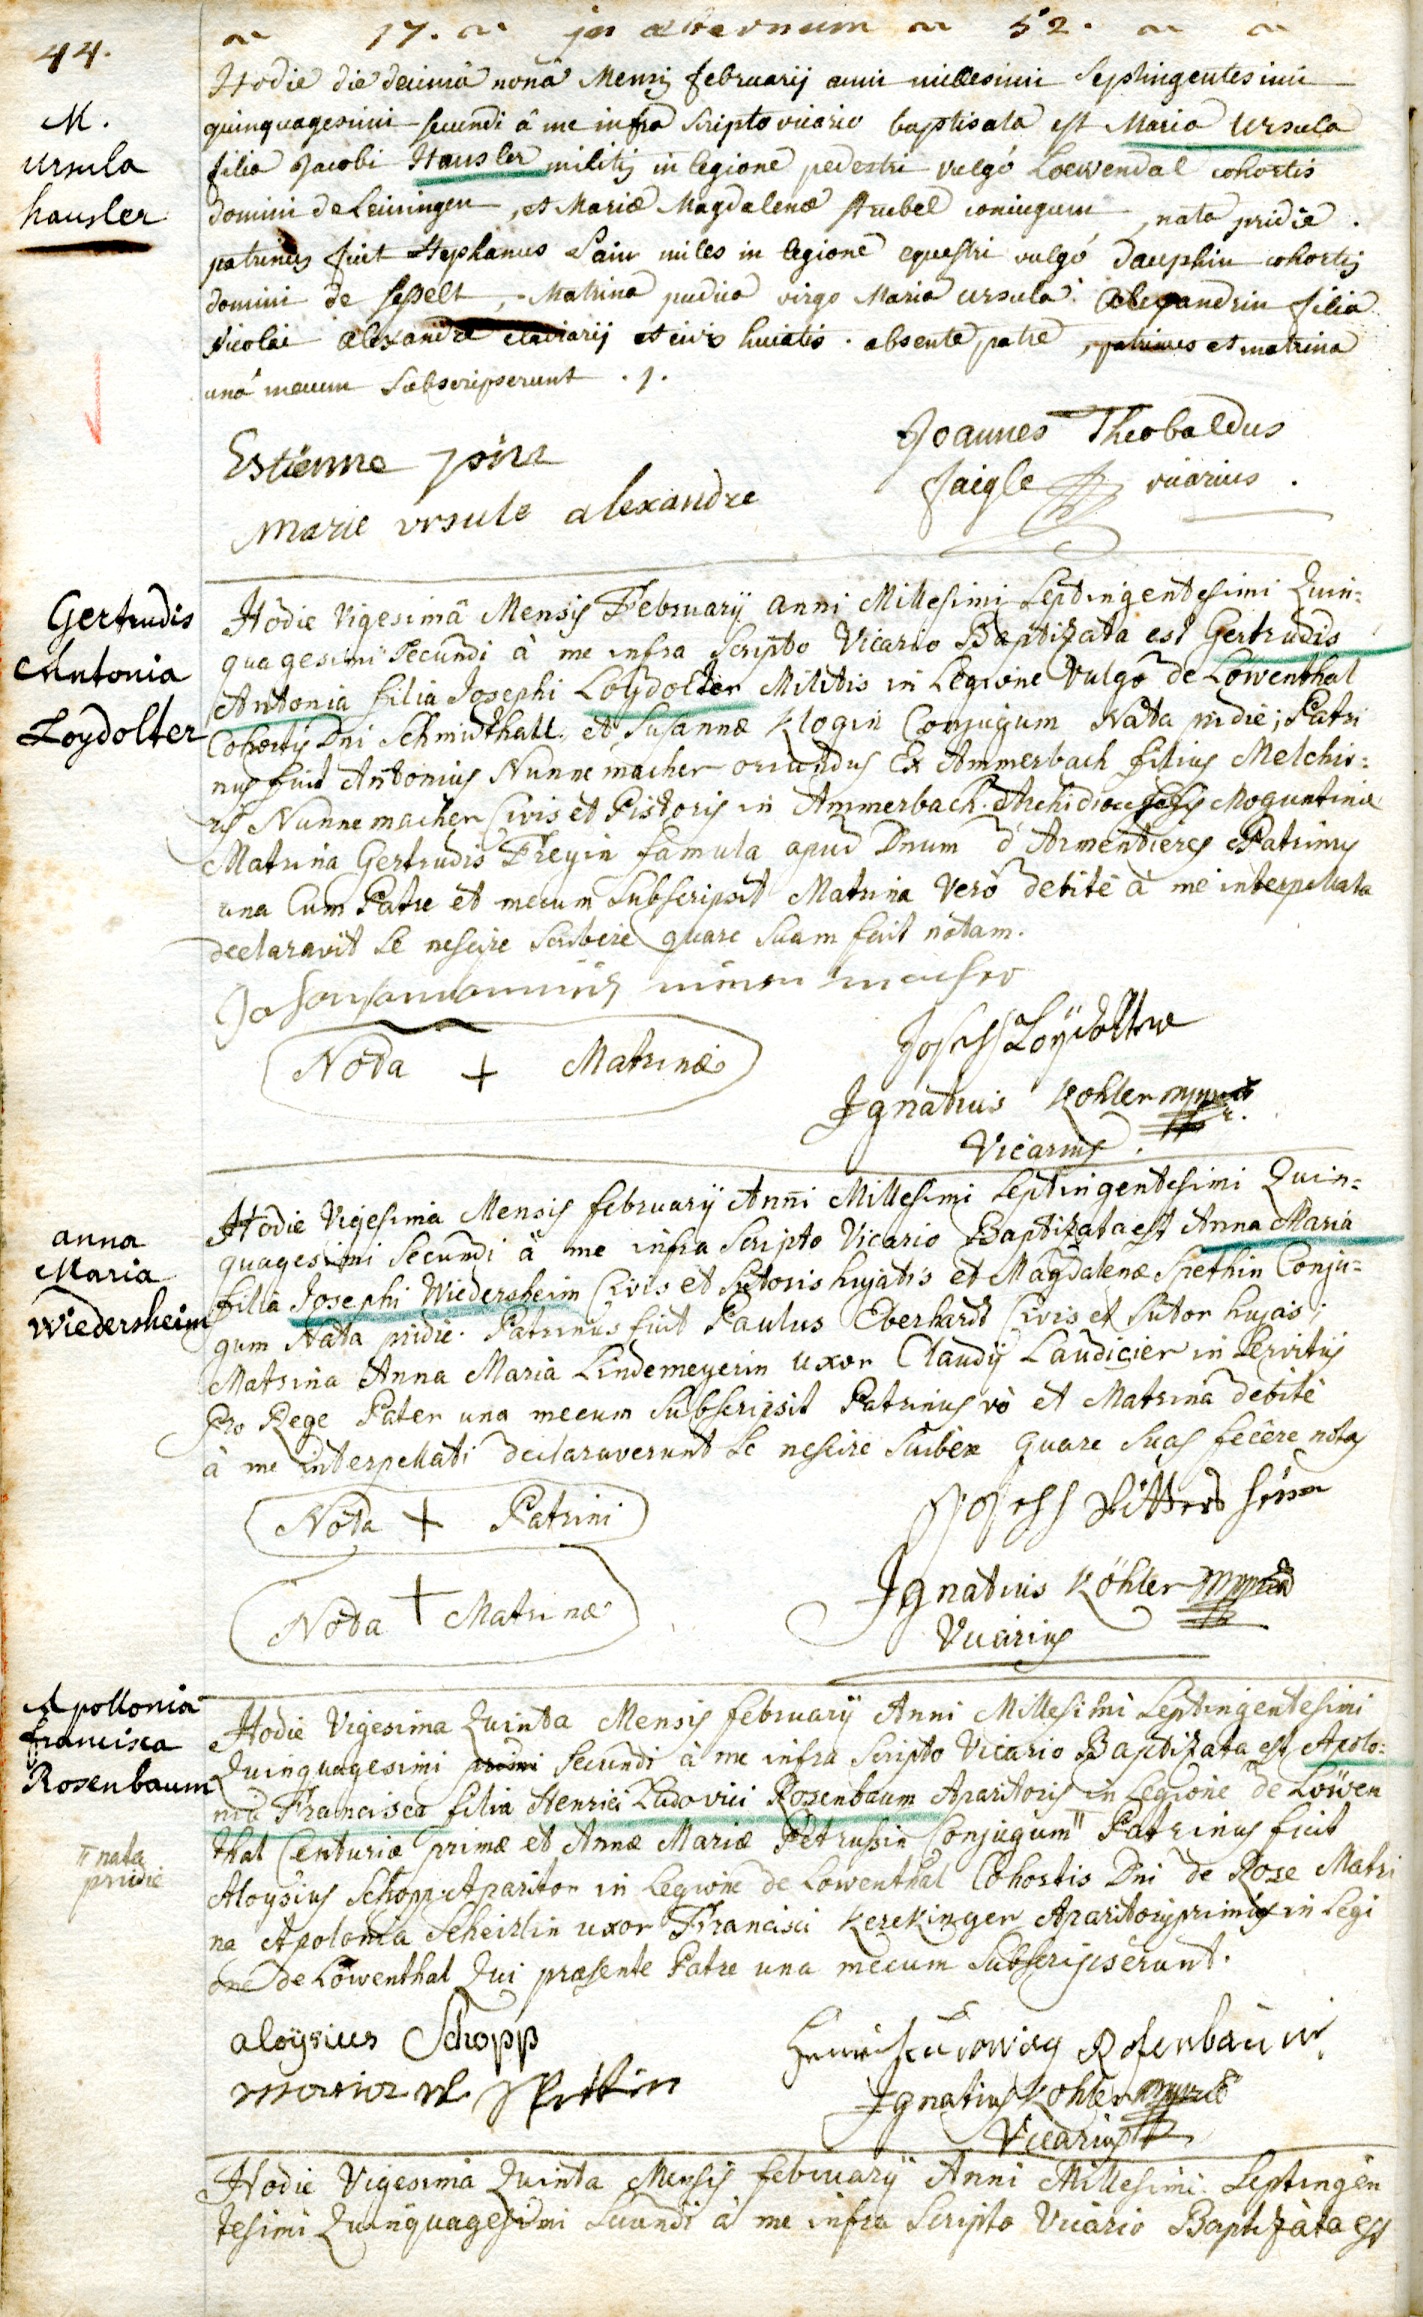 44.
17. in aeternum 52.
M.
Ursula
hausler
Hodie die decimâ nonâ Mensis februarij anni millesimi Septingentesimi
quinquagesimi secundi â me infra scripto vicario baptisata est Maria Ursula
filia Jacobi Hausler militis in legione pedestri vulgó Loewendal cohortis
domini de Leiningen, et Mariæ Magdalenæ Stuebel coniugum, nata pridie.
patrinus fuit Stephanus miles in legione equestri vulgó dauphin cohortis
domini de , Matrina pudica virgo Maria Ursula alexandrin filia
Nicolai alexandre et civis huiatis. absente patre, patrinus et matrina
unâ mecum Subscripserunt .
Estienne
Marie ursule alexandre
Joannes Theobaldus
Jaigle vicarius.
Gertrudis
Antonia
Loydolter
Hodie Vigesimâ Mensis February anni Millesimi Septingentesimi Quin=
quagesimi Secundi à me infra Scripto Vicario Baptizata est Gertrudis
Antonia filia Josephi Loydolter Militis in Legione Vulgo de Löwenthal
Cohortis Dni Schmidthall et Susannæ Klogin Conjugum Nata pridie; Patri
nus fuit Antonius Nunnemacher oriundus Ex Ammerbach filius Melchio=
ris Nunnemacher Civis et Pistoris in Ammerbach Archidiocesis Moguntinæ
Matrina Gertrudis Freyin famula apud Dnum d'Armentieres Patrinus
una Cum Patre et mecum Subscripsit Matrina Verò debitè à me interpellata
declaravit Se nescire Scribere quare Suam fecit notam.
Nota + Matrinæ
Joseph Loÿdolter
Ignatius Kohler mppria
Vicarius.
anna
Maria
Wiedersheim
Hodie Vigesima Mensis february Anni Millesimi Septingentesimi Quin=
quagesimi Secundi à me infra Scripto Vicario Baptizata est Anna Maria
filia Josephi Wiedersheim Civis et Sutoris hujatis et Magdalenæ Spethin Conju=
gum Nata pridie. Patrinus fuit Paulus Eberhardt Civis et Sutor hujas;
Matrina Anna Maria Lindemeyerin uxor Claudij Laudicier in Servitijs
Pro Rege Pater una mecum Subscripsit Patrinus vò et Matrina debitè
à me interpellati declaraverunt Se nescire Scribere quare Suas fecêre notas
Nota + Patrini
Nota + Matrinæ
Joseph
Ignatius Köhler mppria
Vicarius
Apollonia
francisca
Rosenbaum
Hodie Vigesima Quinta Mensis february Anni Millesimi Septingentesimi
Quinquagesimi primi Secundi à me infra Scripto Vicario Baptizata est Apolo=
nia Francisca filia Henrici Ludovici Rosenbaum Aparitoris in Legione de Löwen
thal Centuriæ primæ et Annæ Mariæ Petrussin Conjugum" Patrinus fuit
" nata
pridie
Aloysius Schopp Aparitor in Legione de Lowenthal Cohortis Dni de Rose Matri
na Apolonia Scheirlin uxor Francisci Kerekinger Aparitoris primis in Legi
one de Löwenthal Qui præsente Patre una mecum Subscripserunt.
aloysius Schopp
Henrich Ludowig Rosenbaum
Ignatius Kohler mppria
Vicarius
Hodie Vigesima Quinta Mensis february Anni Millesimi Septingen
tesimi Quinquagesimi Secundi à me infra Scripto Vicario Baptizata est